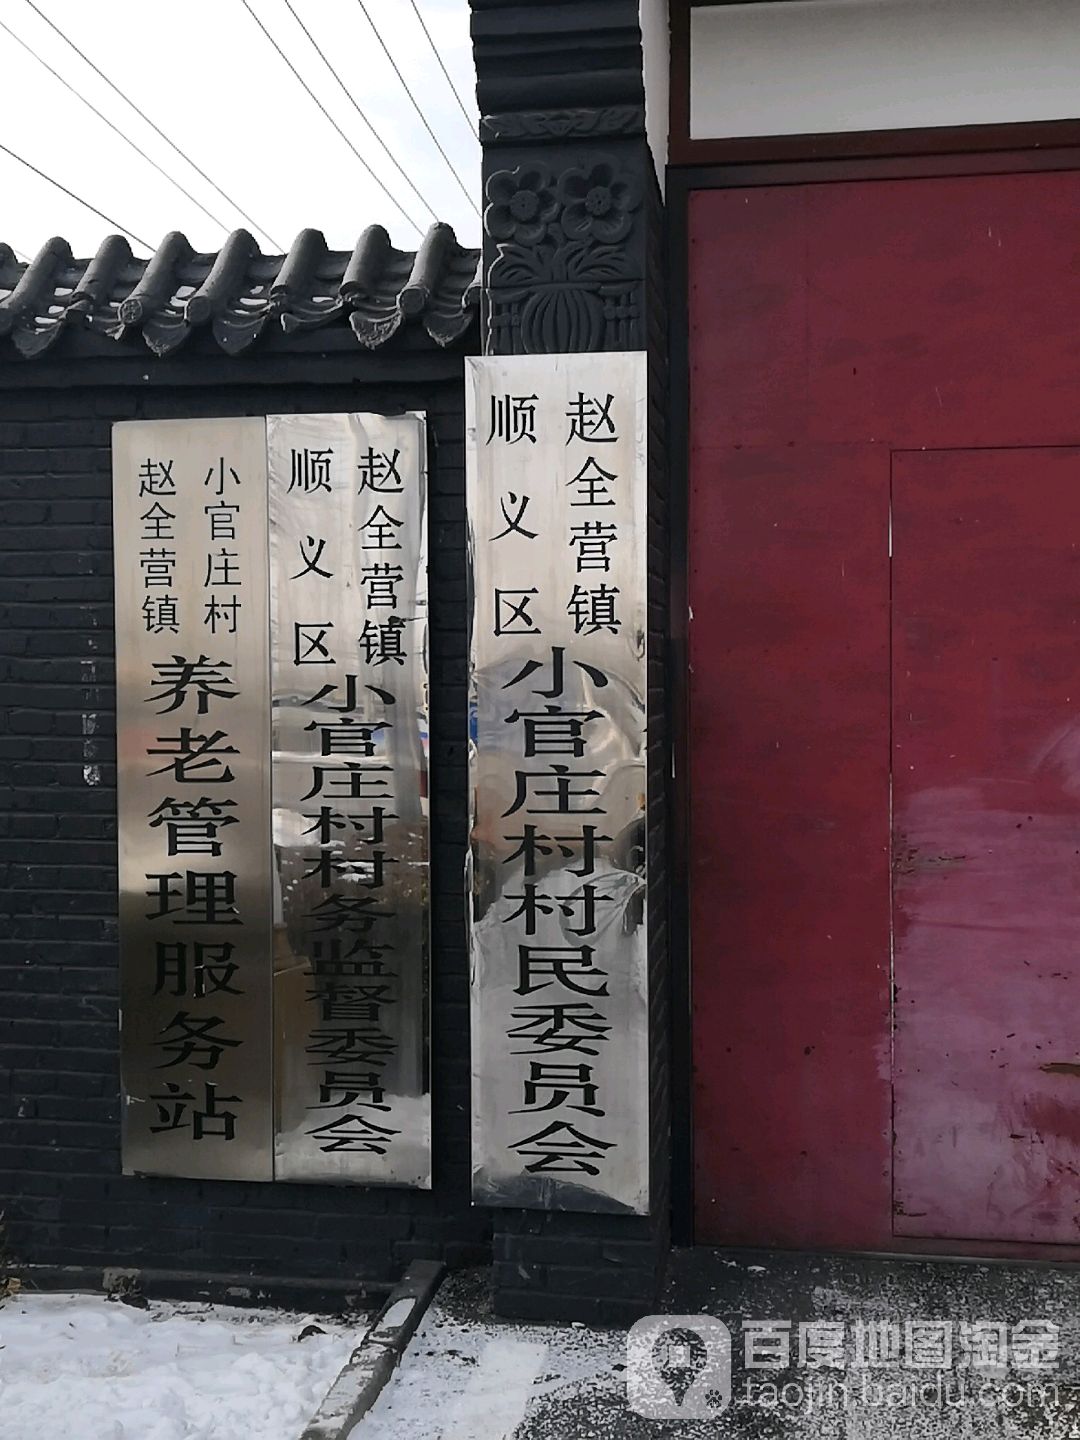 赵全营镇
小官庄村
养老管理服务站
顺义区
赵全营镇
小官庄村村务监督委员会
顺义区
赵全营镇
小官庄村村民委员会
百度地图淘金
taojin.baidu.com